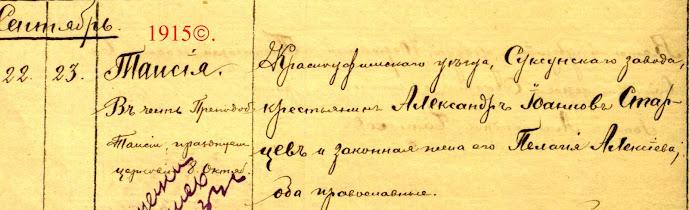 Сентябрь.
1915©.
22. 23. Таисія.
Въ честь Преподоб.
Таисіи, празднуем.
церковію 8 Октяб.
Красноуфимскаго уѣзда, Суксунскаго завода,
крестьянинъ Александръ Іоанновъ Стар-
цевъ и законная жена его Пелагія Алексіева;
оба православные.